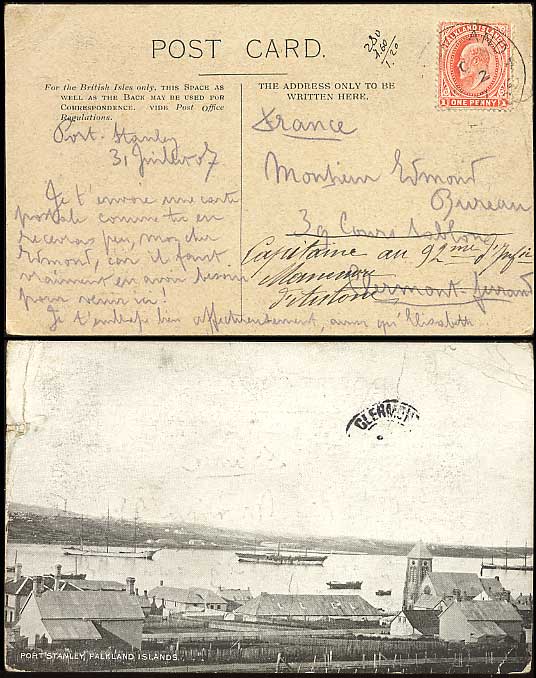 POST CARD.
280
1.60
1.20
FALKLAND ISLANDS
ONE PENNY
1 1
For the British Isles only, THIS SPACE AS
WELL AS THE BACK MAY BE USED FOR
CORRESPONDENCE. VIDE Post Office
Regulations.
THE ADDRESS ONLY TO BE
WRITTEN HERE.
Port. Stanley
31 07
Je t'envoie une carte
postale comme tu en
recevras peu, mon cher
Edmond, car il faut
vraiment en avoir besoin
pour venir ici!
Je t'embrasse bien affectueusement, ainsi qu'Elisabeth
France
Monsieur Edmond
Bureau
39 Cours Sablon
Capitaine au 92me d'Infie
Manoeuvre
d'automne
Clermont-ferrand
CLERMON
PORT STANLEY, FALKLAND ISLANDS.